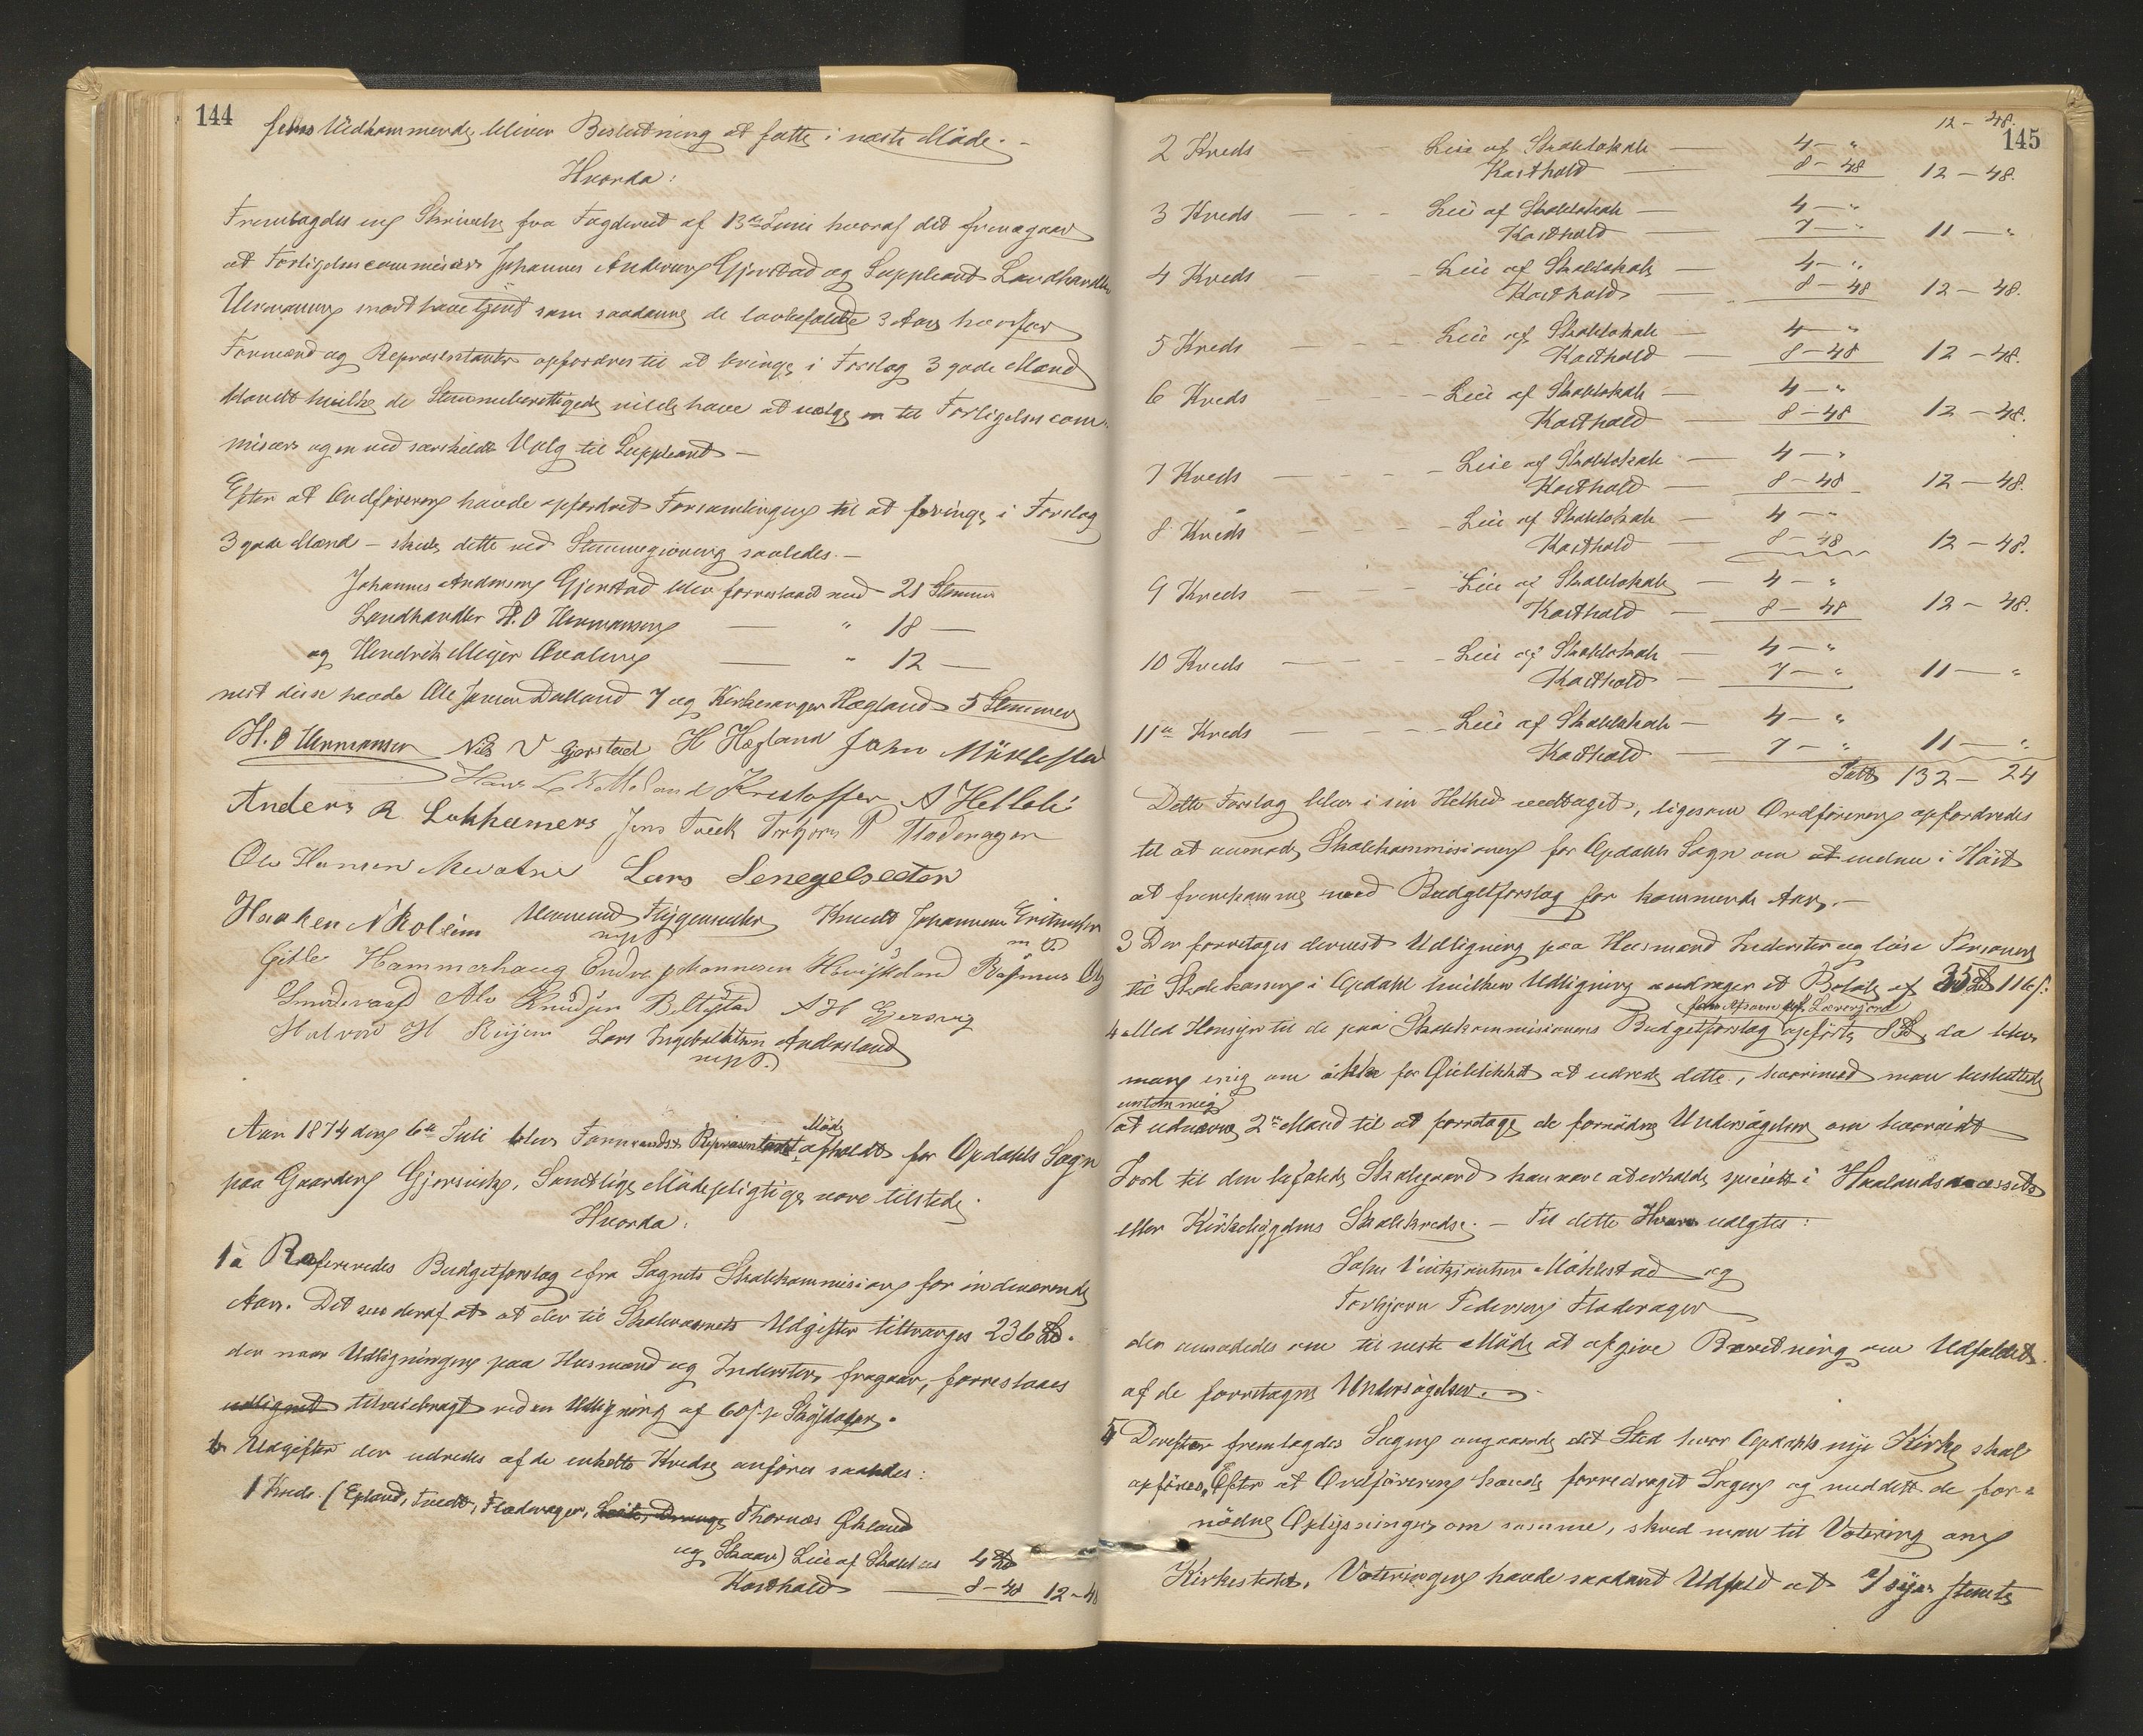 144
Vedkommende bliver Beslutning at fatte i næste Möde. -
Hvorda:
Fremlagdes en Skrivelse fra Fogderiet af 13de Juni hvoraf det fremgaar
at Forligelsescommisær Johannes Andersen Gjerstad og Suppleant Landhandler
Hermansen mod have tjent som saadanne de lovbefalede 3 Aar hvorfor
Formænd og Repræsentanter opfordres til at bringe i Forslag 3 gode Mænd
blandt hvilke de Stemmeberettigede vilde have at vælge en til Forligelsescom-
misær og en ved særskildt Valg til Suppleant -
Efter at Ordföreren havde opfordret Forsamlingen til at bringe i Forslag
3 gode Mænd - skede dette ved Stemmegivning saaledes. -
Johannes Andersen Gjerstad blev forreslaaet med 21 Stemmer
Landhandler H. O Hermansen — " 18 —
og Hendrik Meyer — " 12 —
nest disse havde Ole Jansen Dalland 7 og Kirkesanger Hægland 5 Stemmer
H. O Hermansen Nils V Gjerstad H Hægland John Möklestad
Hans L Kristoffer A Helleli
Anders R. Lukkamers Jens Tveit Torbjörn P Fladerager
Ole Hansen Lars Senegelseter
Haaken N Roleim Flygansvær Knudt Johannesen
m P
Gitle Hammerhaug Endre Johannesen Rasmus O
Knudsen A H Gjersvig
Halvor H Röyen Lars Ingebrektsen Andersland
m P.
Aar 1874 den 6te Juli blev Formands & Repræsentant Möde afholdt for Opdahls Sogn
paa Gaarden Gjersvik. Samtlige Mödepligtige vare tilstede.
Hvorda:
1 a Refereredes Budgetforslag fra Sognets Skolekommision for indeværende
Aar. Det saa deraf at der til Skolevæsnets Udgifter tiltrænges 236 Spd.
der naar Udligningen paa Husmænd og Inderster fragaar, forreslaaes
udlignet tilveiebragt ved en Udligning af 60 s. pr Skylddaler.
b Udgifter der udredes af de enkelte Kredse anföres saaledes:
1 Kreds. (Epland, Tveedt, Flaaderager, Thornæs Økland
og Skaar) Leie af Skolehus 4 Spd
Kosthold — 8 - 48 12 - 48
145
12 - 48.
2 Kreds - - - Leie af Skolelokale — 4 — "
Kosthold — 8 - 48 12 - 48.
3 Kreds - - - Leie af Skolelokale — 4 — "
Kosthold — 7 — " 11 — "
4 Kreds - - - Leie af Skolelokale — 4 — "
Kosthold — 8 - 48 12 - 48.
5 Kreds - - - Leie af Skolelokale — 4 — "
Kosthold — 8 - 48 12 - 48.
6 Kreds - - - Leie af Skolelokale — 4 — "
Kosthold — 8 - 48 12 - 48.
7 Kreds - - - Leie af Skolelokale — 4 — "
Kosthold — 8 - 48 12 - 48.
8 Kreds - - - Leie af Skolelokale — 4 — "
Kosthold — 8 - 48 12 - 48.
9 Kreds - - - Leie af Skolelokale — 4 — "
Kosthold — 8 - 48 12 - 48.
10 Kreds - - - Leie af Skolelokale — 4 — "
Kosthold — 7 — " 11 — "
11te Kreds - - - Leie af Skolelokale — 4 — "
Kosthold — 7 — " 11 — "
132 - 24
Dette Forslag blev i sin Helhed vedtaget, ligesom Ordföreren opfordredes
til at anmode Skolekommisionen for Opdahls Sogn om at endnu i Höst
at fremkomme med Budgetforslag for kommende Aar. -
3 Der forretages dernest Udligning paa Husmænd Inderster og löse Personer
til Skolekassen i Opdahl hvilken Udligning andrager et Belöb af 35 Spd 116 s.
for Afsavn af Lærerjord
4 Med Hensyn til de paa Skolekommisionens Budgetforslag opförte 8 Spd, da blev
man enig om ikke for Öieblikket at udrede dette, hvorimod man besluttede
at udnævne 2de Mænd til at forretage de fornödne Undersögelser om hvorvidt
Jord til den befalede Skolegaard kan være at erholde, specielt i Haalandsnæssets
eller Kirkebygdens Skolekredse. - Til dette Hverv valgtes:
John Vintjentsen Möklestad og
Torbjörn Pedersen Fladerager
der anmodedes om til neste Möde at afgive Beretning om Udfaldet
af de forretagne Undersögelser. -
5 Derefter fremlagdes Sagen angaaende det Sted hvor Opdahls nye Kirke skal
opföres. Efter at Ordföreren havde forredraget Sagen og meddelt de for-
nödne Oplysninger om samme, skred man til Votering om
Kirkestedet. Voteringen havde saadant Udfald at a/ syv stemte